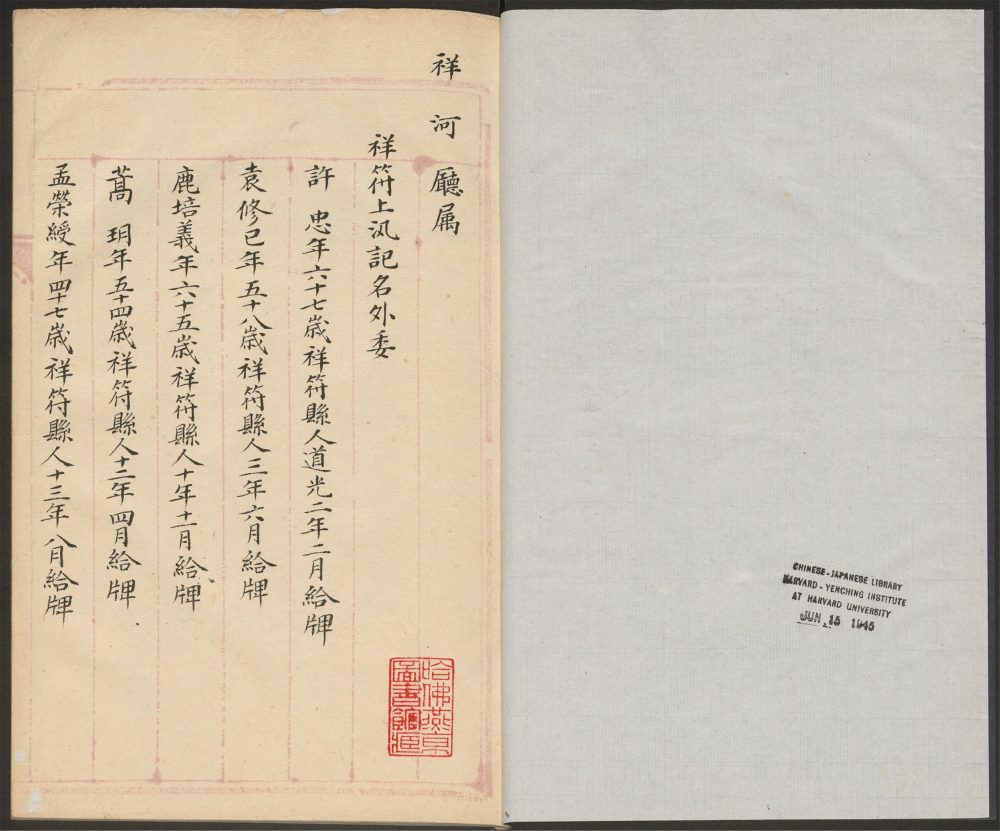 祥河廳属
祥符上汛記名外委
許忠年六十七歳祥符縣人道光二年二月給牌
袁修已年五十八歳祥符縣人三年六月給牌
鹿培義年六十五歳祥符縣人十年十一月給牌
蒿玥年五十四歳祥符縣人十二年四月給牌
孟榮綬年四十七歳祥符縣人十三年八月給牌
哈佛燕京
圖書館藏
CHINESE-JAPANESE LIBRARY
HARVARD-YENCHING INSTITUTE
AT HARVARD UNIVERSITY
JUN 15 1945